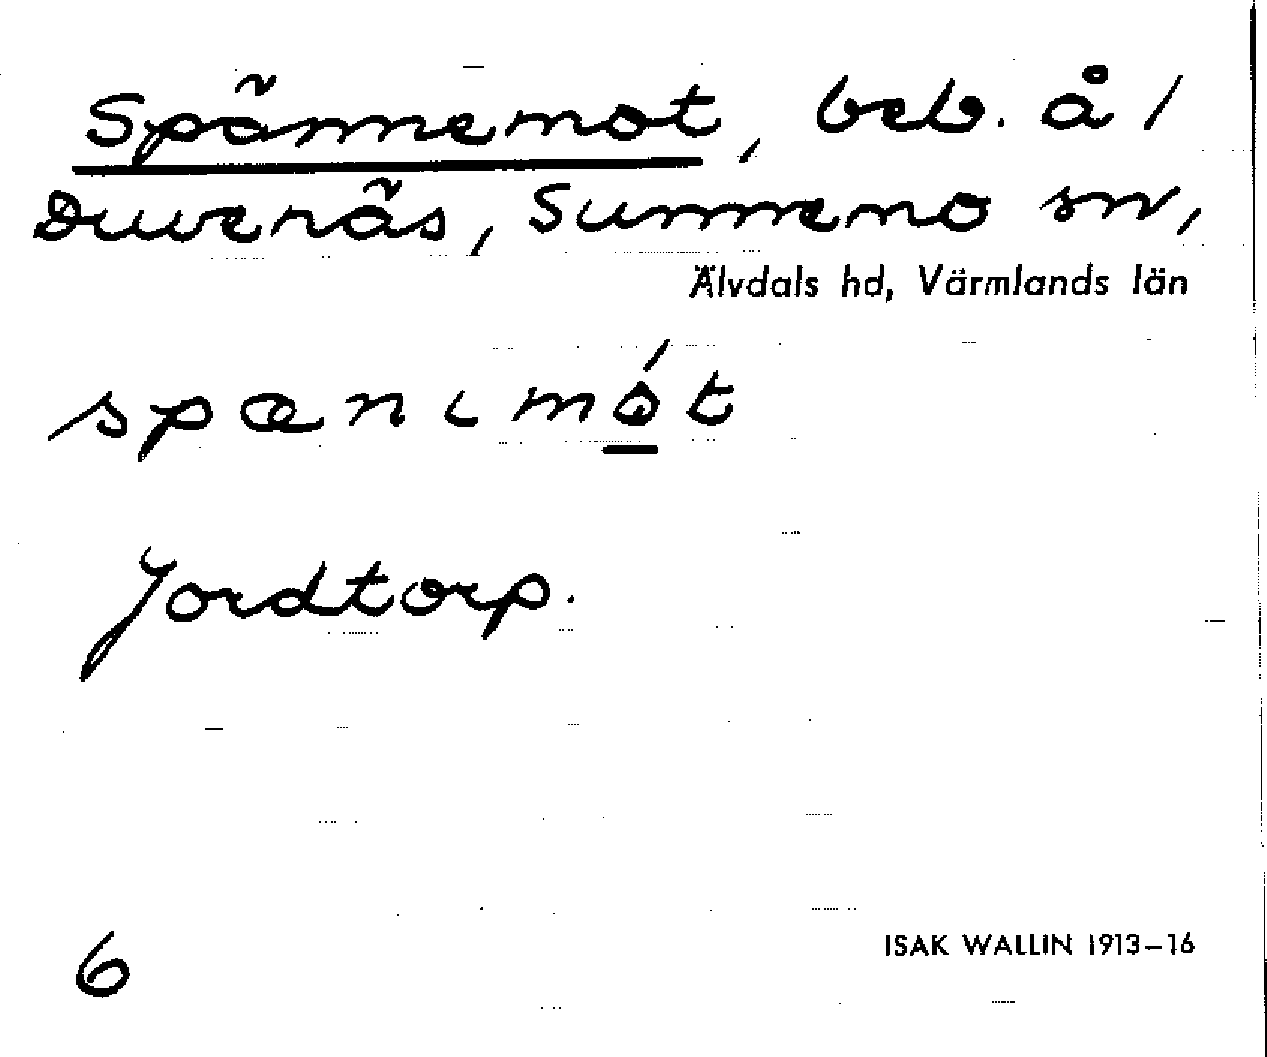 Spännemot, beb. å /
Duvenäs, Sunnemo sn,
Älvdals hd, Värmlands län
spænɩmót
Jordtorp.
6
ISAK WALLIN 1913–16